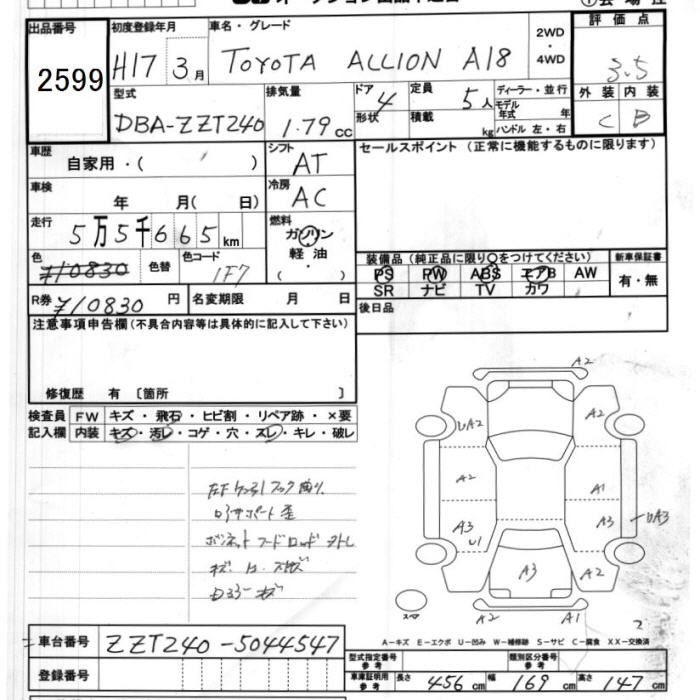 出品番号 初度登録年月 車名・グレード 2WD・4WD 評価点
2599 H17 3月 TOYOTA ALLION A18 3.5
型式 排気量 ドア 4 定員 5人 ディーラー・並行 外装 内装
DBA-ZZT240 1.79cc 形状 積載 kg モデル年式 年 ハンドル 左・右 C B
車歴 自家用・( ) シフト AT セールスポイント (正常に機能するものに限ります)
車検 年 月( 日) 冷房 AC
走行 5万5千665km 燃料 ガソリン 軽油 ( ・ )
色 ¥10830 色替 色コード 1F7 装備品 (純正品に限り○をつけてください) 新車保証書
PS PW ABS エアB AW 有・無
R券 ¥10830円 名変期限 月 日 SR ナビ TV カワ
注意事項申告欄 (不具合内容等は具体的に記入して下さい) 後日品
修復歴 有 〔箇所 〕
検査員 FW キズ・飛石・ヒビ割・リペア跡・×要
記入欄 内装 キズ・汚レ・コゲ・穴・スレ・キレ・破レ
A2
UA2 A2
A2 A1
A3 U1 A3 UA3
A3 A2
A2 A1
ボンネットフードロッド
スペア 2
A-キズ E-エクボ U-凹み W-補修跡 S-サビ C-腐食 XX-交換済
車台番号 ZZT240-5044547
型式指定番号 類別区分番号
登録番号 車庫証明用参考 長さ 456cm 幅 169cm 高さ 147cm